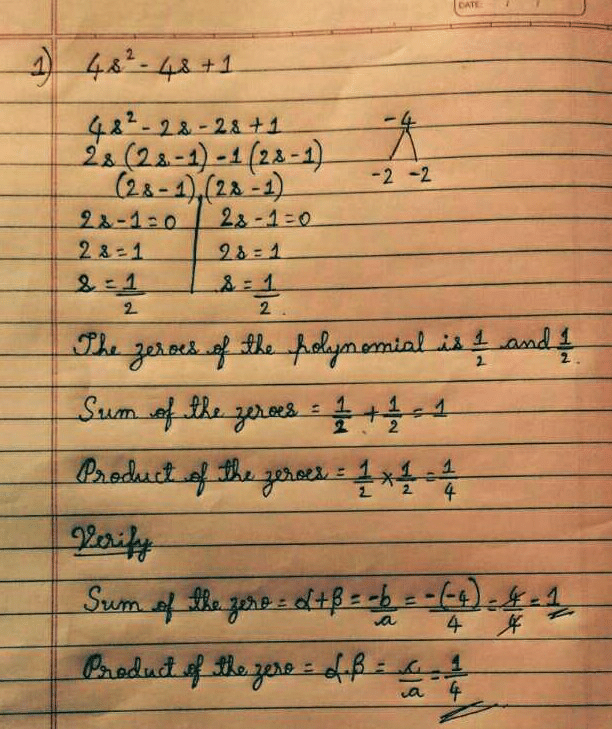 DATE: / /
1) 4s² - 4s + 1
4s² - 2s - 2s + 1
-4
2s (2s - 1) - 1 (2s - 1)
-2 -2
(2s - 1), (2s - 1)
2s - 1 = 0 | 2s - 1 = 0
2s = 1 | 2s = 1
s = 1/2 | s = 1/2.
The zeroes of the polynomial is 1/2 and 1/2.
Sum of the zeroes = 1/2 + 1/2 = 1
Product of the zeroes = 1/2 × 1/2 = 1/4
Verify
Sum of the zero = α + β = -b/a = -(-4)/4 = 4/4 = 1
Product of the zero = α.β = c/a = 1/4